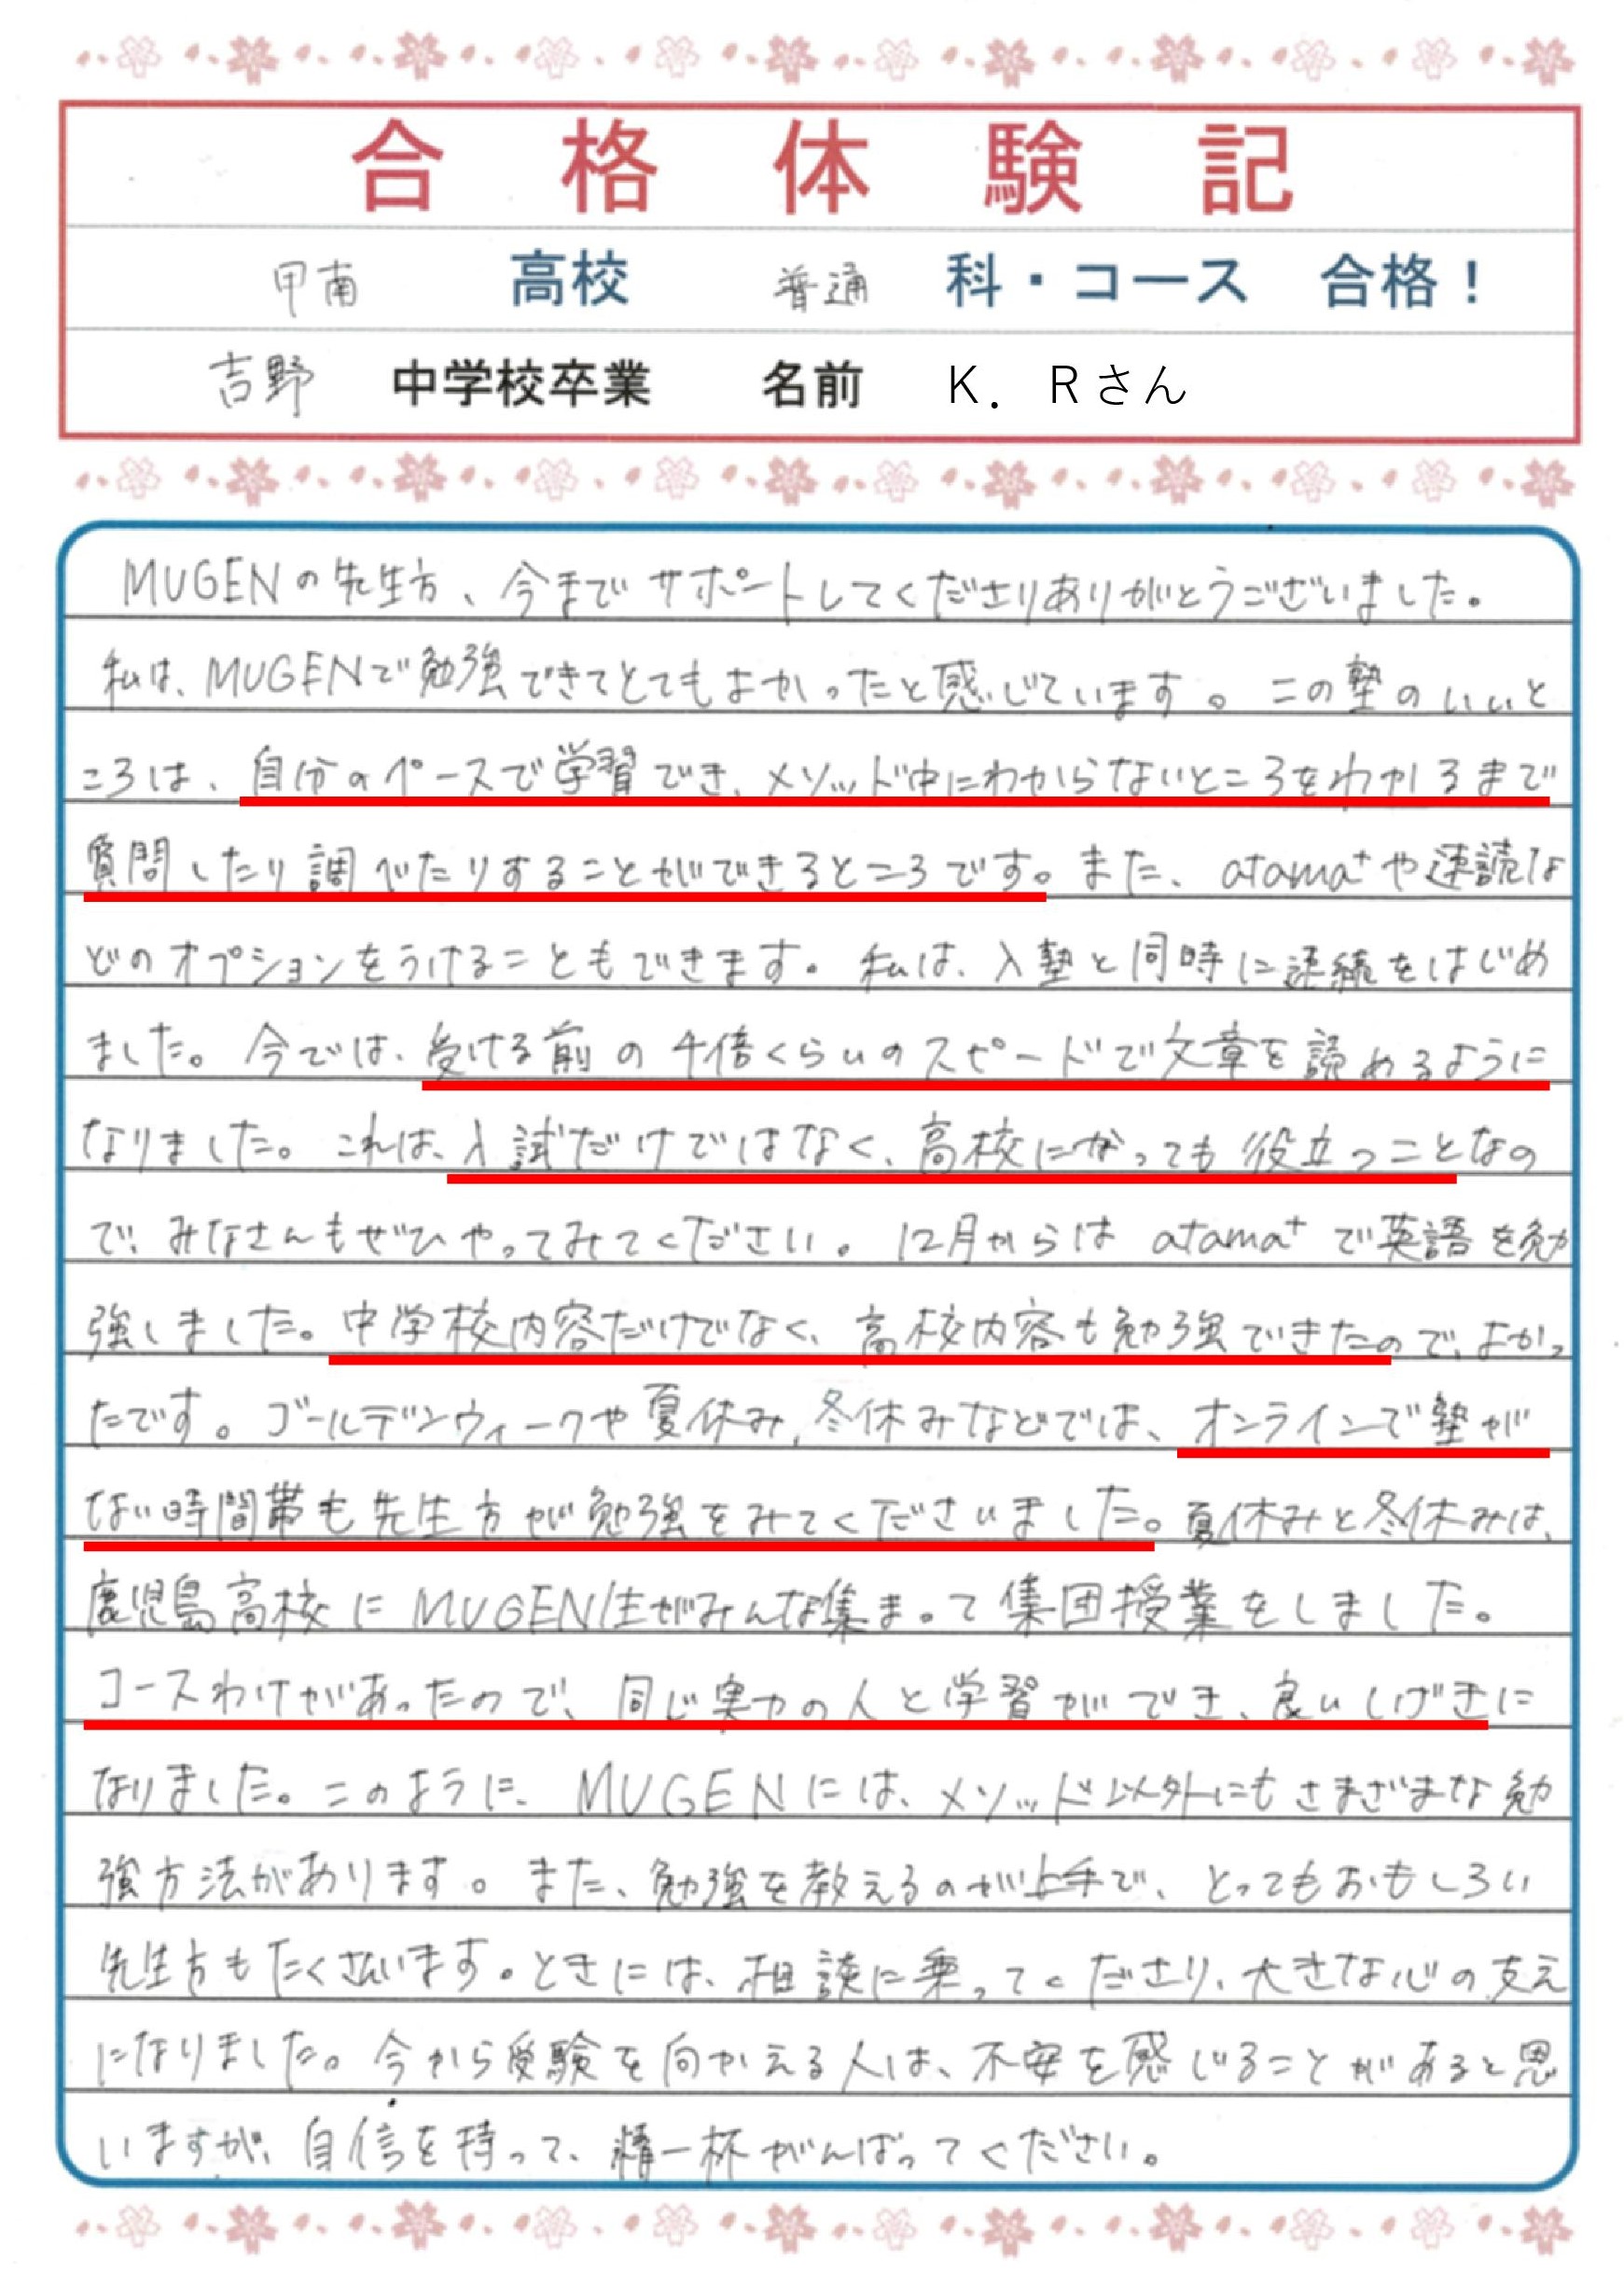 合格体験記
甲南 高校 普通 科・コース 合格！
吉野 中学校卒業 名前 K．Rさん
MUGENの先生方、今までサポートしてくださりありがとうございました。
私は、MUGENで勉強できてとてもよかったと感じています。この塾のいいと
ころは、自分のペースで学習でき、メソッド中にわからないところをわかるまで
質問したり調べたりすることができるところです。また、atama+や速読な
どのオプションをうけることもできます。私は、入塾と同時に速読をはじめ
ました。今では、受ける前の4倍くらいのスピードで文章を読めるように
なりました。これは、入試だけではなく、高校になっても役立つことなの
で、みなさんもぜひやってみてください。12月からは atama+ で英語を勉
強しました。中学校内容だけでなく、高校内容も勉強できたので、よかっ
たです。ゴールデンウィークや夏休み、冬休みなどでは、オンラインで塾が
ない時間帯も先生方が勉強をみてくださいました。夏休みと冬休みは、
鹿児島高校にMUGEN生がみんな集まって集団授業をしました。
コースわけがあったので、同じ実力の人と学習ができ、良いしげきに
なりました。このように、MUGENには、メソッド以外にもさまざまな勉
強方法があります。また、勉強を教えるのが上手で、とってもおもしろい
先生方もたくさんいます。ときには、相談に乗ってくださり、大きな心の支え
になりました。今から受験を向かえる人は、不安を感じることがあると思
いますが、自信を持って、精一杯がんばってください。